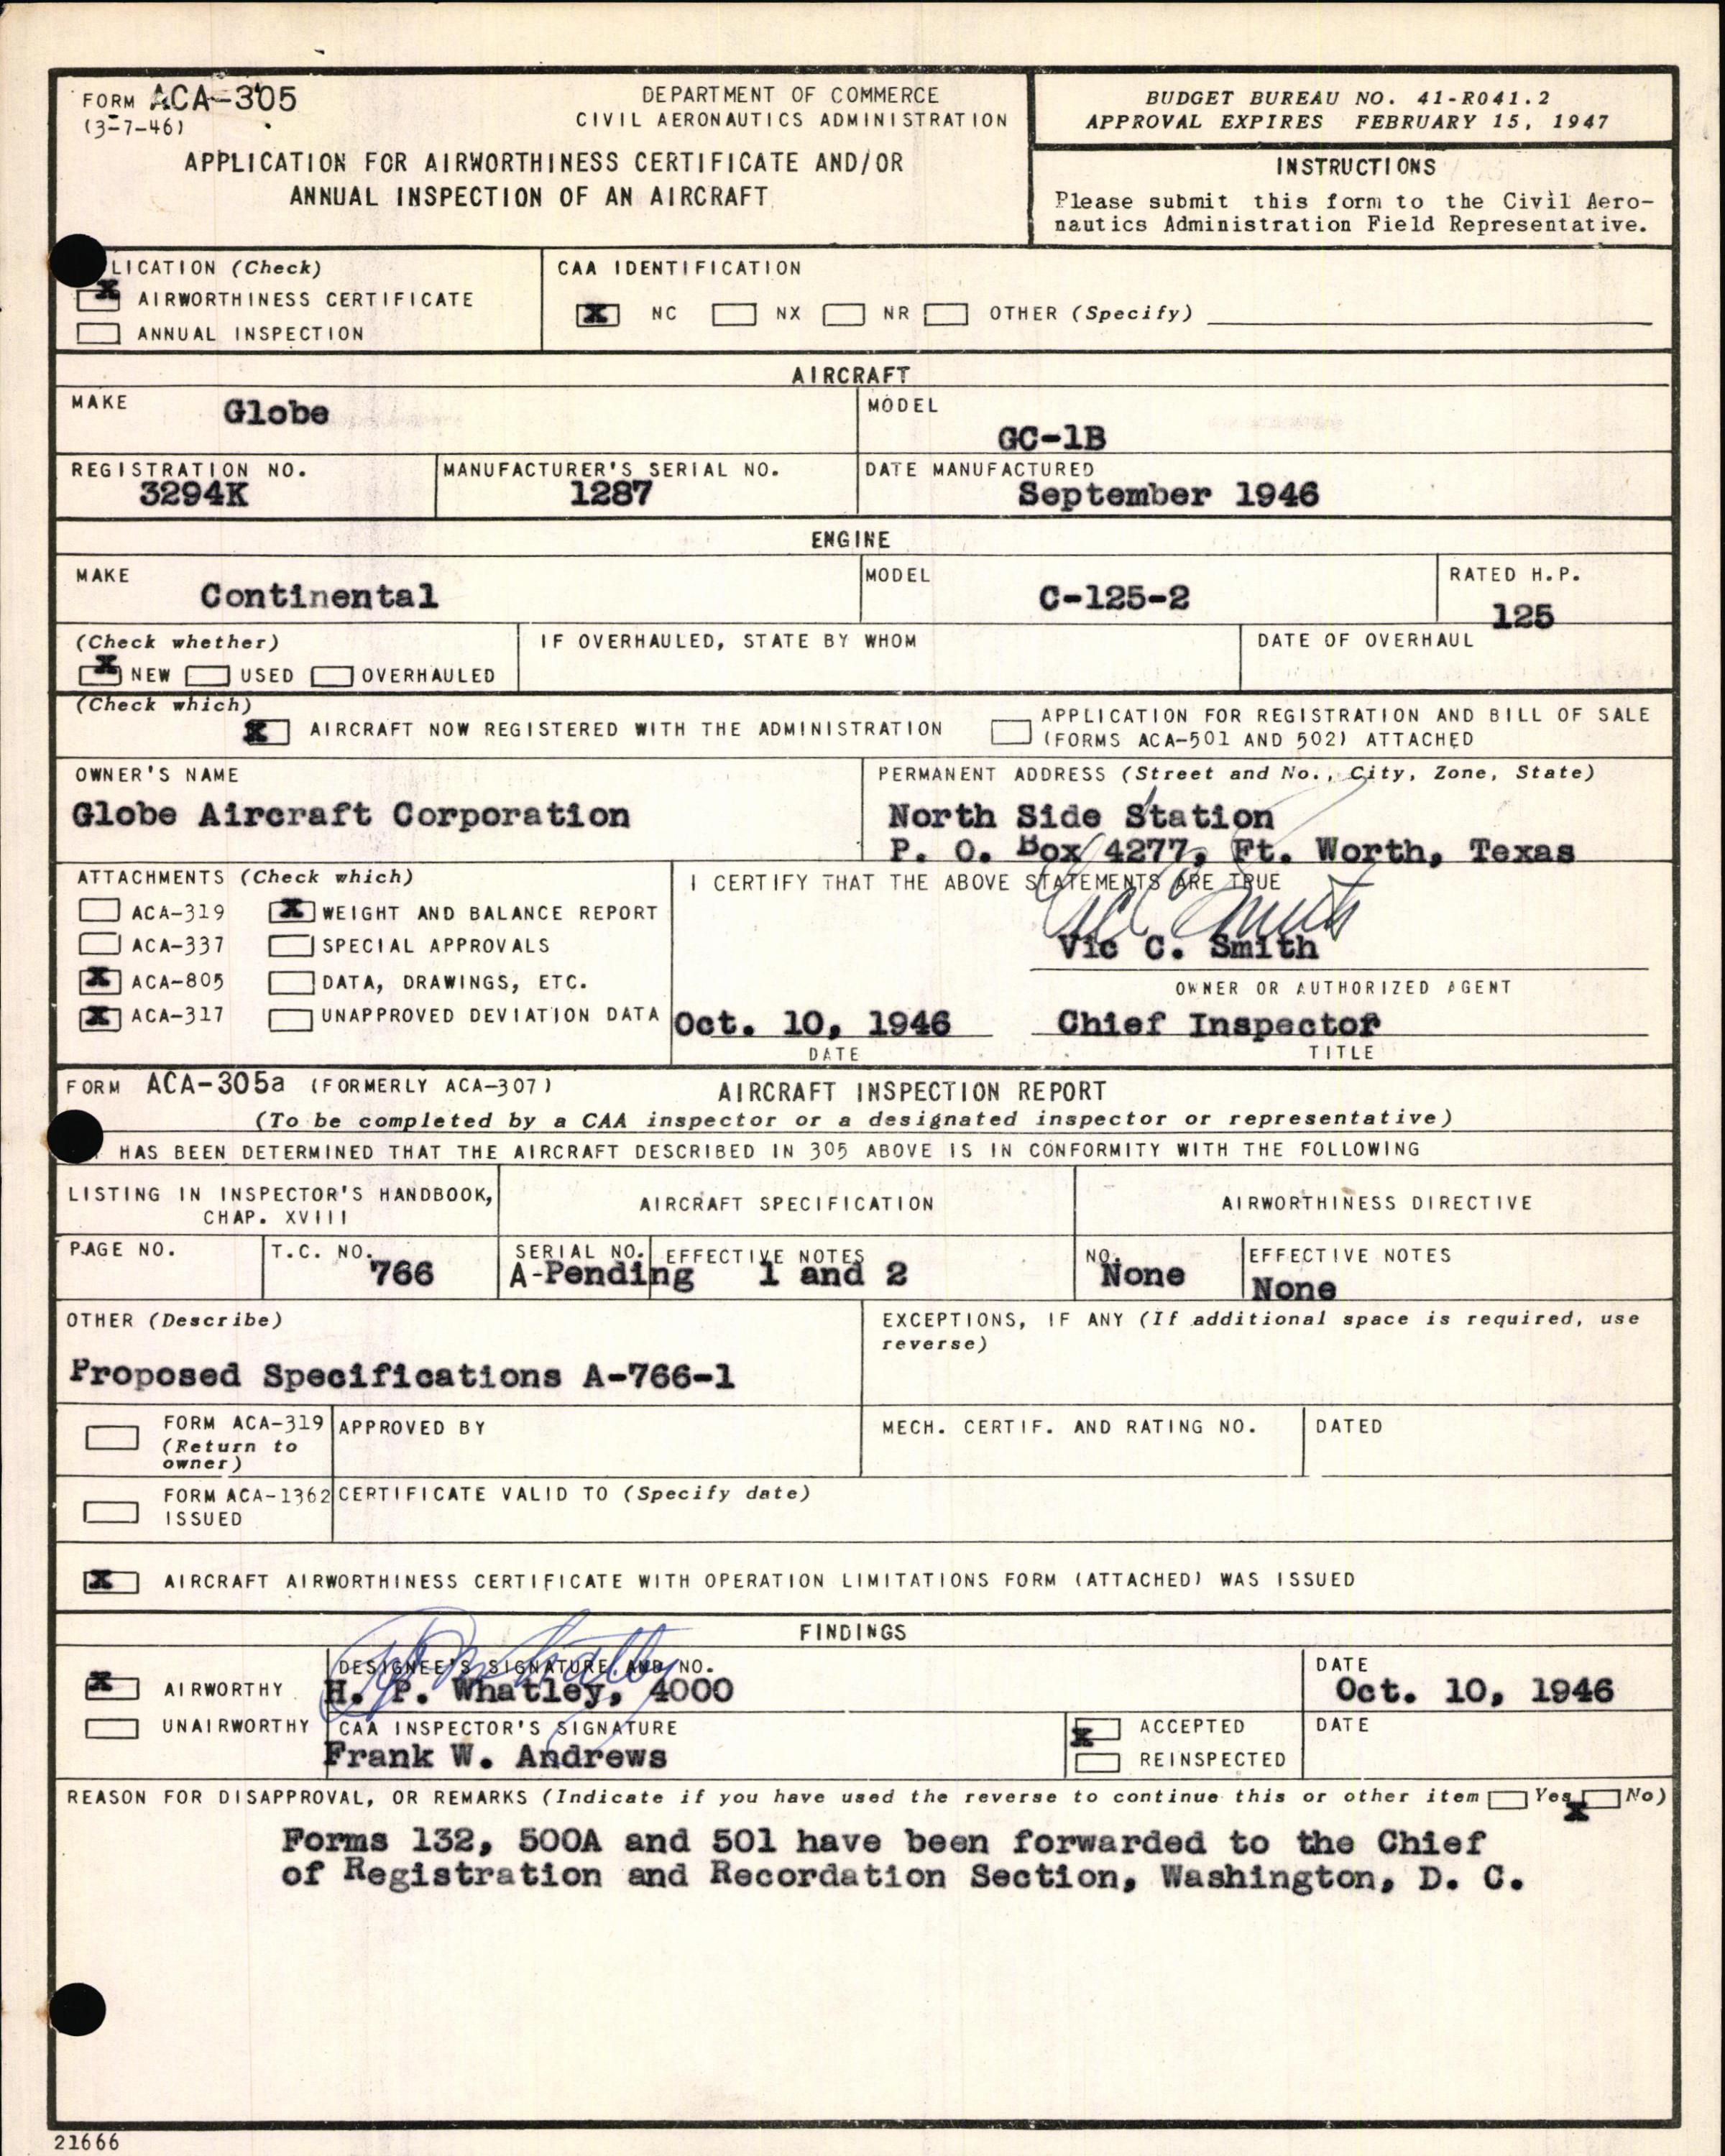 FORM ACA-305
(3-7-46)
DEPARTMENT OF COMMERCE
CIVIL AERONAUTICS ADMINISTRATION
APPLICATION FOR AIRWORTHINESS CERTIFICATE AND/OR
ANNUAL INSPECTION OF AN AIRCRAFT
BUDGET BUREAU NO. 41-R041.2
APPROVAL EXPIRES FEBRUARY 15, 1947
INSTRUCTIONS
Please submit this form to the Civil Aero-
nautics Administration Field Representative.
LICATION (Check)
X AIRWORTHINESS CERTIFICATE
ANNUAL INSPECTION
CAA IDENTIFICATION
X NC NX NR OTHER (Specify)
AIRCRAFT
MAKE
Globe
MODEL
GC-1B
REGISTRATION NO.
3294K
MANUFACTURER'S SERIAL NO.
1287
DATE MANUFACTURED
September 1946
ENGINE
MAKE
Continental
MODEL
C-125-2
RATED H.P.
125
(Check whether)
X NEW USED OVERHAULED
IF OVERHAULED, STATE BY WHOM
DATE OF OVERHAUL
(Check which)
X AIRCRAFT NOW REGISTERED WITH THE ADMINISTRATION
APPLICATION FOR REGISTRATION AND BILL OF SALE
(FORMS ACA-501 AND 502) ATTACHED
OWNER'S NAME
Globe Aircraft Corporation
PERMANENT ADDRESS (Street and No., City, Zone, State)
North Side Station
P. O. Box 4277, Ft. Worth, Texas
ATTACHMENTS (Check which)
ACA-319 X WEIGHT AND BALANCE REPORT
ACA-337 SPECIAL APPROVALS
X ACA-805 DATA, DRAWINGS, ETC.
X ACA-317 UNAPPROVED DEVIATION DATA
I CERTIFY THAT THE ABOVE STATEMENTS ARE TRUE
Vic C. Smith
OWNER OR AUTHORIZED AGENT
Oct. 10, 1946 Chief Inspector
DATE TITLE
FORM ACA-305a (FORMERLY ACA-307) AIRCRAFT INSPECTION REPORT
(To be completed by a CAA inspector or a designated inspector or representative)
HAS BEEN DETERMINED THAT THE AIRCRAFT DESCRIBED IN 305 ABOVE IS IN CONFORMITY WITH THE FOLLOWING
LISTING IN INSPECTOR'S HANDBOOK,
CHAP. XVIII
AIRCRAFT SPECIFICATION
AIRWORTHINESS DIRECTIVE
PAGE NO.
T.C. NO.
766
SERIAL NO.
A-Pending
EFFECTIVE NOTES
1 and 2
NO.
None
EFFECTIVE NOTES
None
OTHER (Describe)
Proposed Specifications A-766-1
EXCEPTIONS, IF ANY (If additional space is required, use
reverse)
FORM ACA-319
(Return to
owner)
APPROVED BY
MECH. CERTIF. AND RATING NO.
DATED
FORM ACA-1362
ISSUED
CERTIFICATE VALID TO (Specify date)
X AIRCRAFT AIRWORTHINESS CERTIFICATE WITH OPERATION LIMITATIONS FORM (ATTACHED) WAS ISSUED
FINDINGS
X AIRWORTHY
UNAIRWORTHY
DESIGNEE'S SIGNATURE AND NO.
H. P. Whatley, 4000
DATE
Oct. 10, 1946
CAA INSPECTOR'S SIGNATURE
Frank W. Andrews
X ACCEPTED
REINSPECTED
DATE
REASON FOR DISAPPROVAL, OR REMARKS (Indicate if you have used the reverse to continue this or other item Yes X No)
Forms 132, 500A and 501 have been forwarded to the Chief
of Registration and Recordation Section, Washington, D. C.
21666